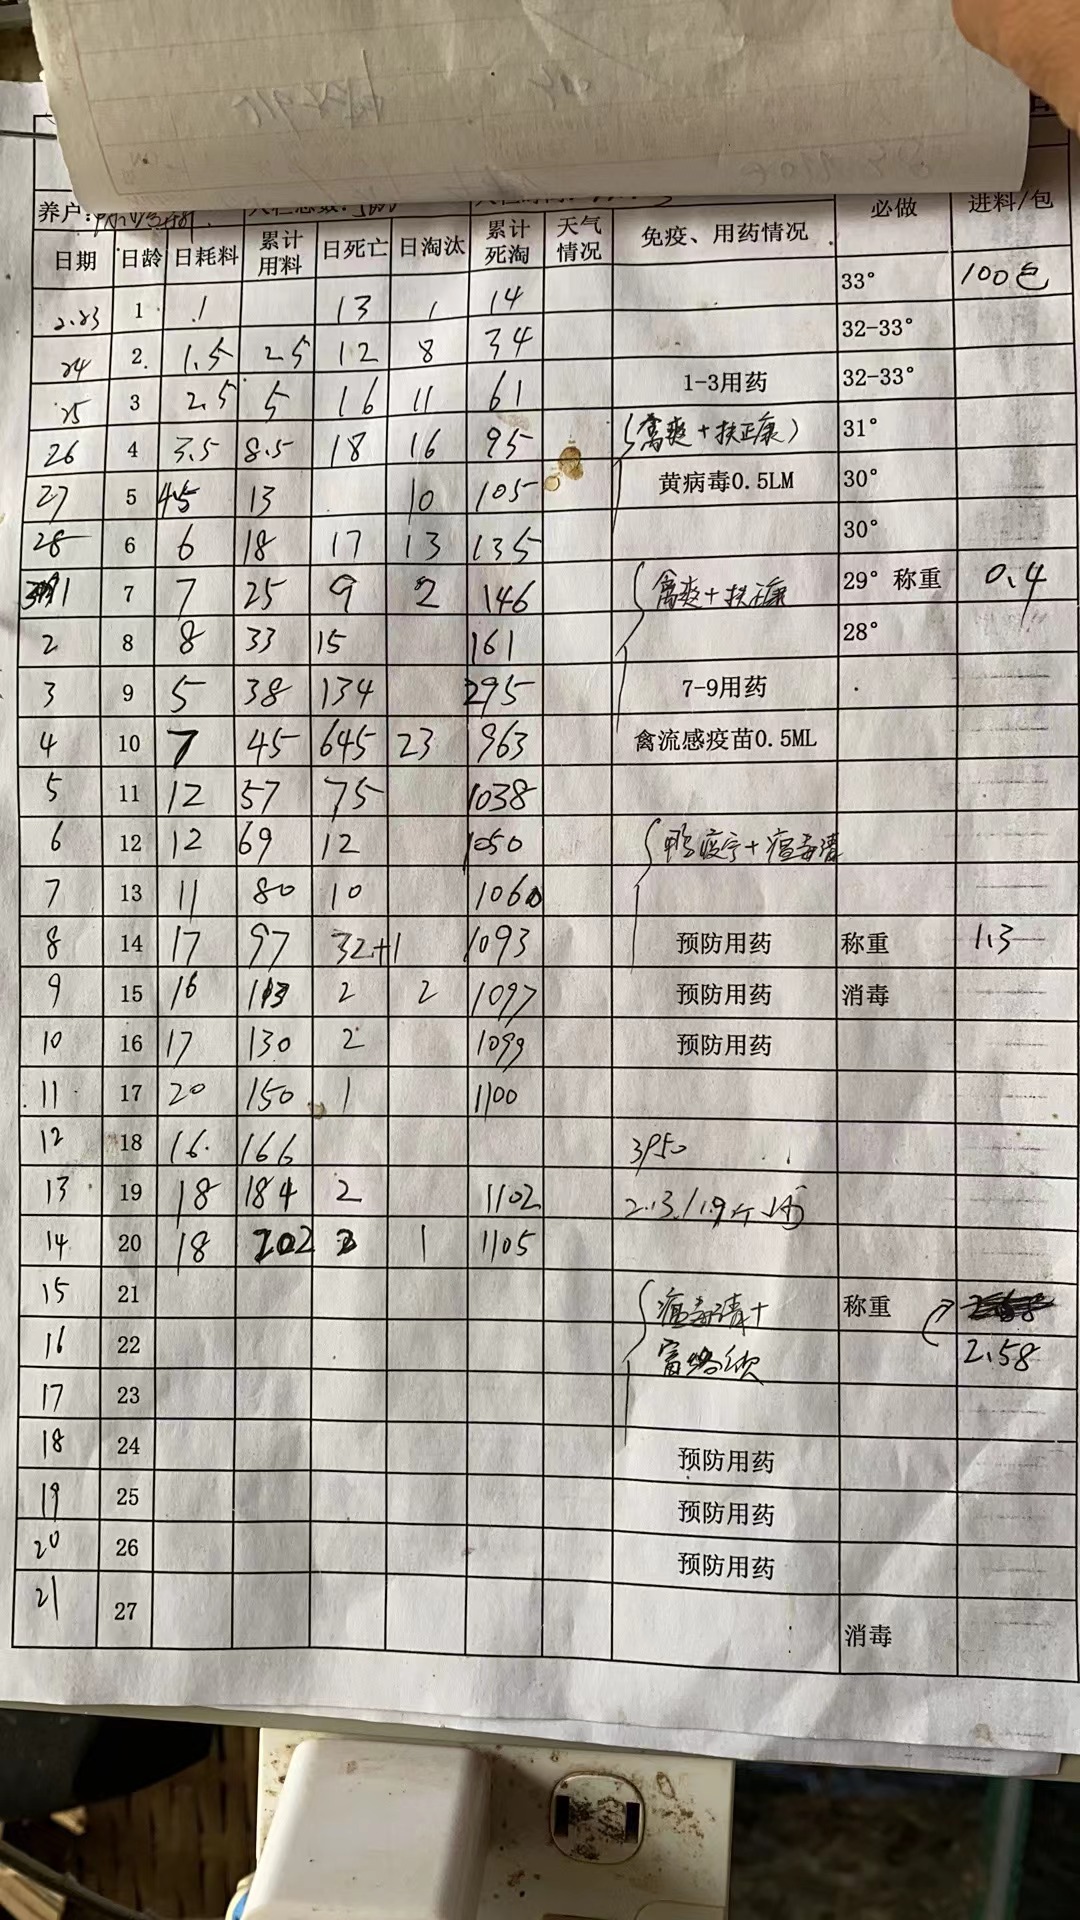 养户：
日期 日龄 日耗料 累计用料 日死亡 日淘汰 累计死淘 天气情况 免疫、用药情况 必做 进料/包
2.23 1 1 13 1 14 33° 100包
24 2 1.5 2.5 12 8 34 32-33°
25 3 2.5 5 16 11 61 1-3用药 32-33°
26 4 3.5 8.5 18 16 95 (禽爽+扶正康) 31°
27 5 4.5 13 10 105 黄病毒0.5LM 30°
28 6 6 18 17 13 135 30°
1 7 7 25 9 2 146 禽爽+扶正康 29° 称重 0.4
2 8 8 33 15 161 28°
3 9 5 38 134 295 7-9用药
4 10 7 45 645 23 963 禽流感疫苗0.5ML
5 11 12 57 75 1038
6 12 12 69 12 1050 鸭疫宁+瘟毒清
7 13 11 80 10 1060
8 14 17 97 32+1 1093 预防用药 称重 1.3
9 15 16 113 2 2 1097 预防用药 消毒
10 16 17 130 2 1099 预防用药
11 17 20 150 1 1100
12 18 16 166 3950
13 19 18 184 2 1102 2.13/1.9斤
14 20 18 202 2 1 1105
15 21 瘟毒清+ 称重
16 22 2.58
17 23
18 24 预防用药
19 25 预防用药
20 26 预防用药
21 27 消毒